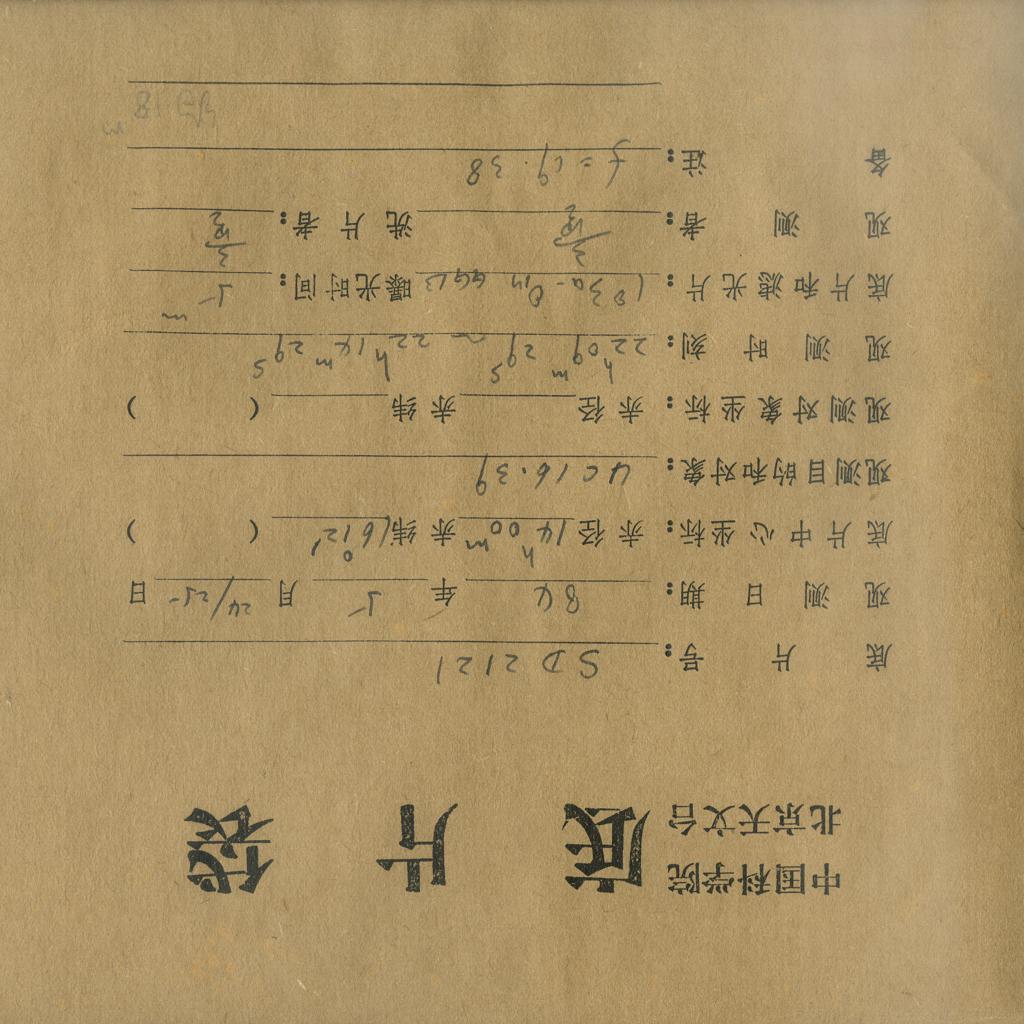 中国科学院
北京天文台
底 片 袋
底片号：SD2121
观测日期：84年 5月 24/25日
底片中心坐标：赤径 14h00m 赤纬 16°12′ （ ）
观测目的和对象：4C16.39
观测对象坐标：赤径 赤纬 （ ）
观测时刻：22h09m29s ~ 22h14m29s
底片和滤光片：103a-O in GG13 曝光时间：5m
观测者： 洗片者：
备注：f=19.38
18m